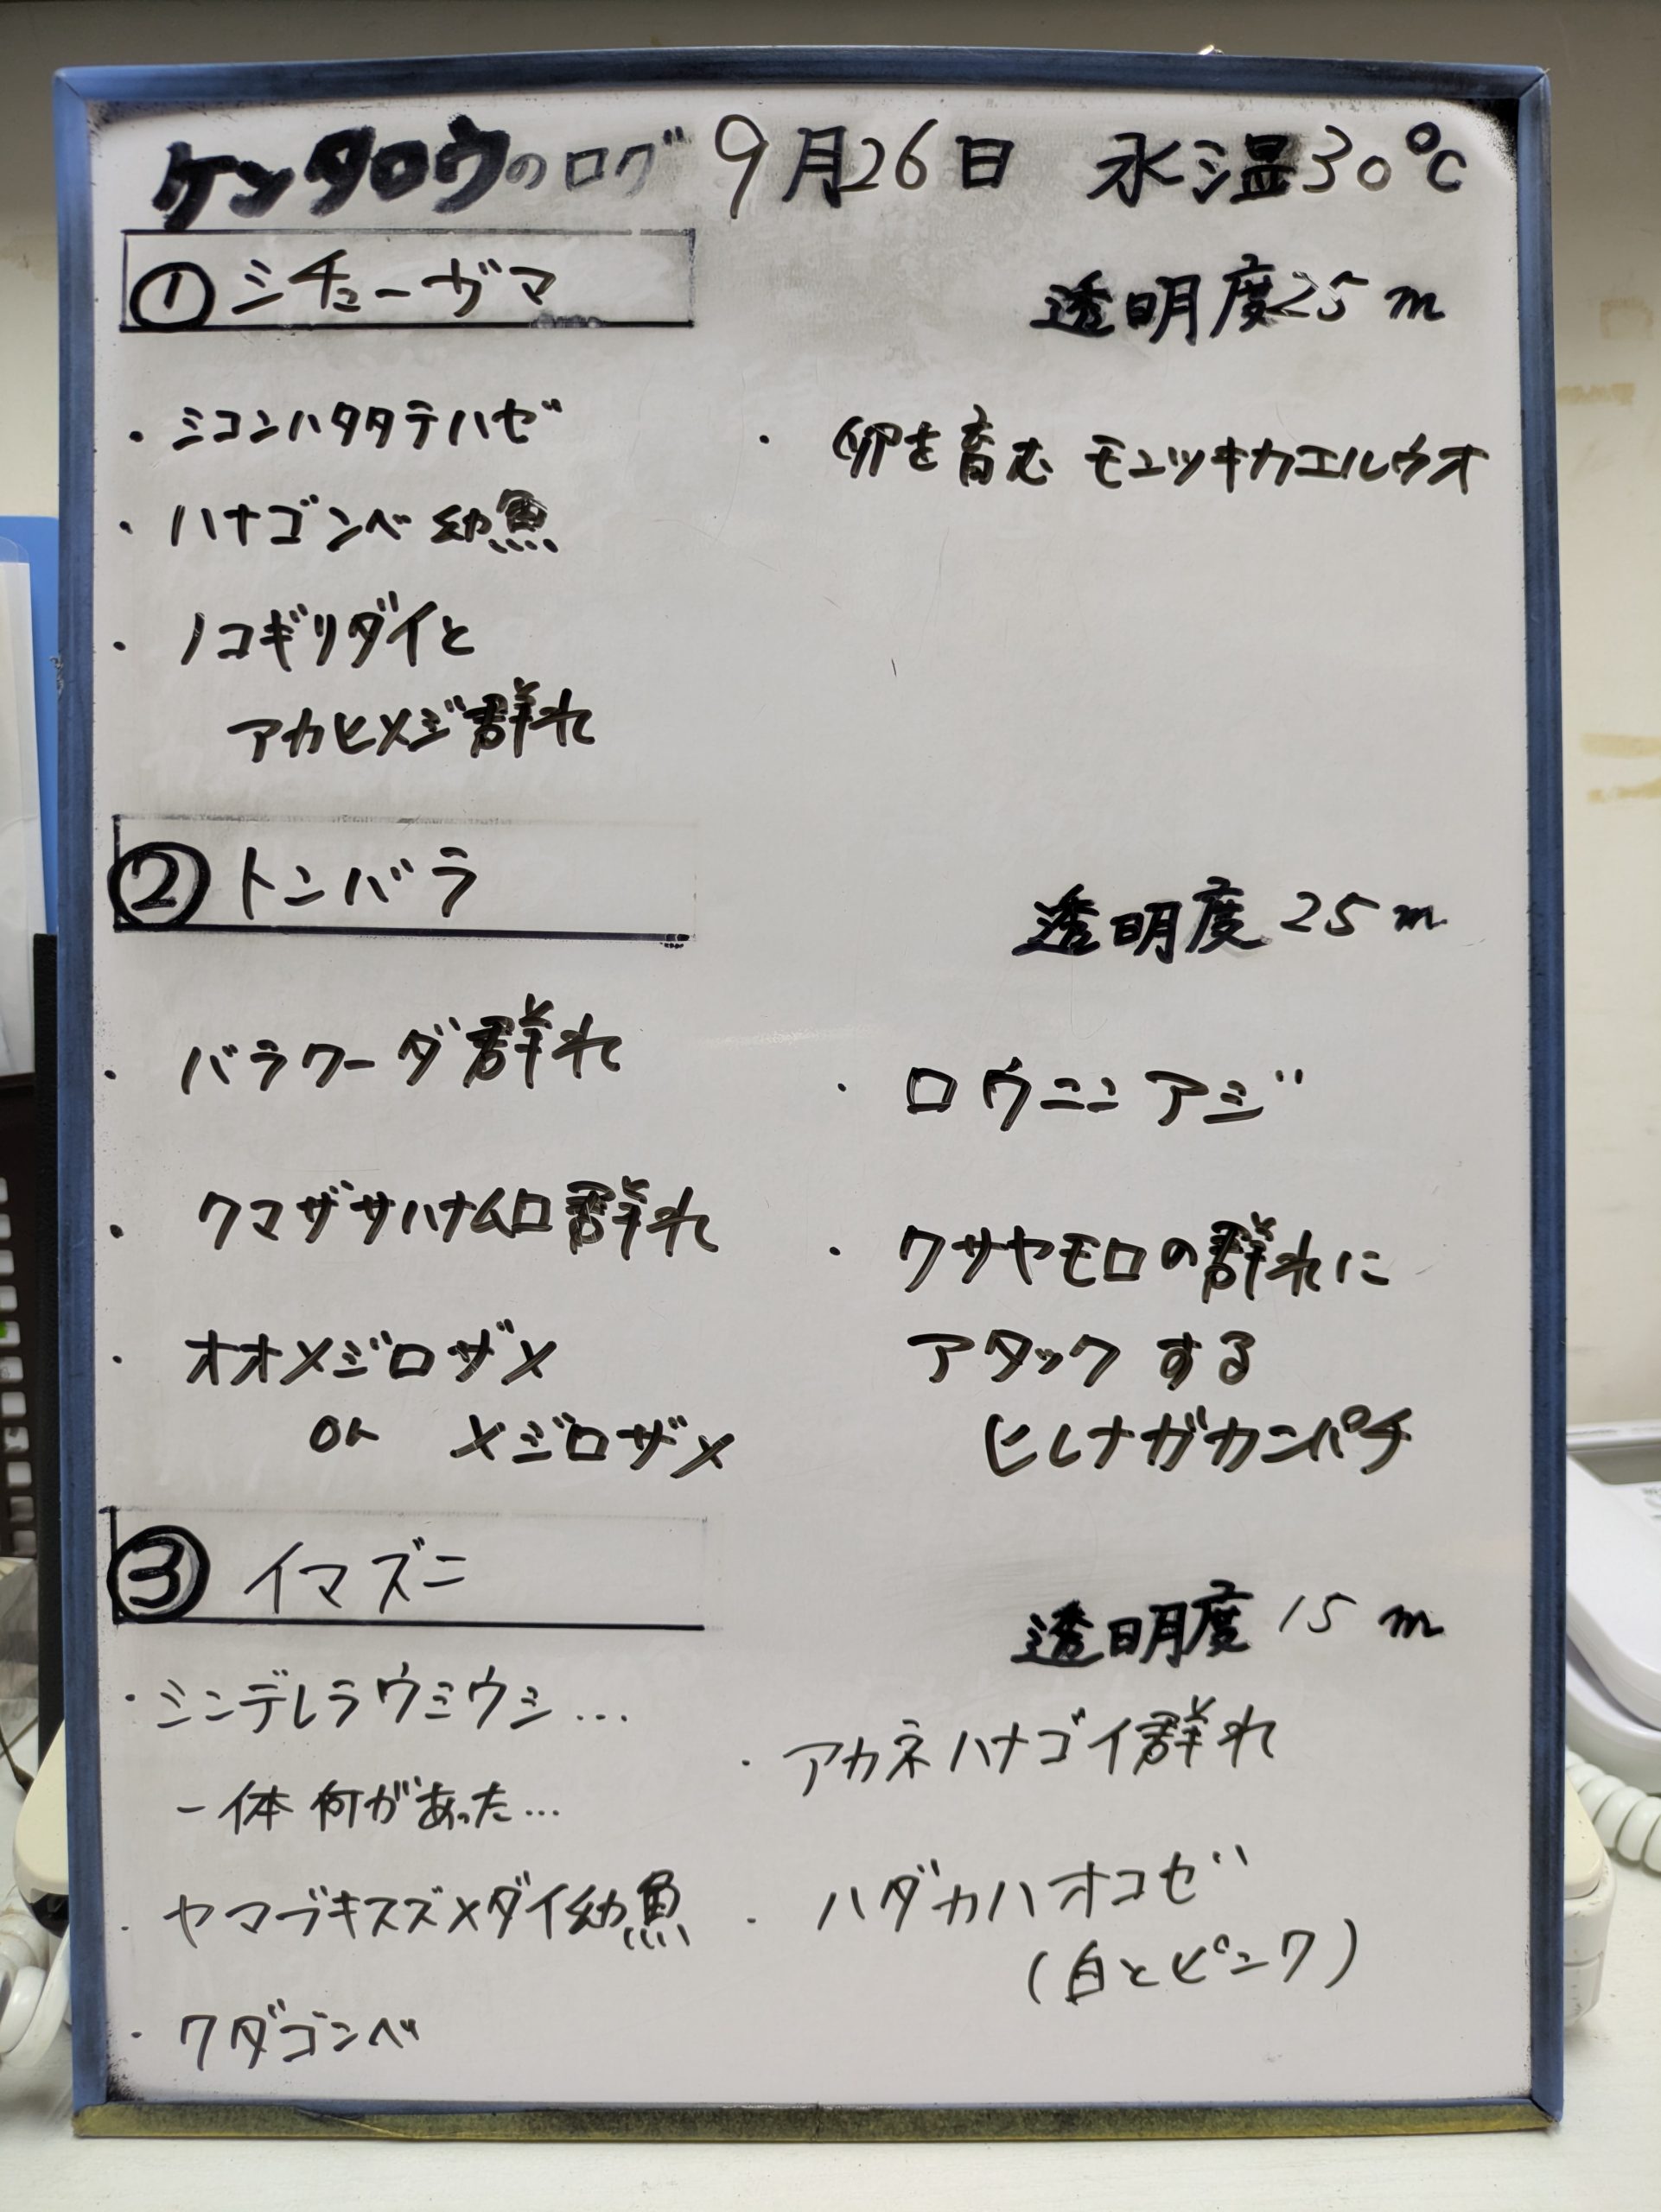 ケンタロウのログ 9月26日 水温30℃
① シチューガマ
透明度25m
・ミコンハタタテハゼ
・ハナゴンベ幼魚
・ノコギリダイと
アカヒメジ群れ
・卵を育む モユツキカエルウオ
② トンバラ
透明度 25m
・バラクーダ群れ
・クマザサハナムロ群れ
・オオメジロザメ
or メジロザメ
・ロウニンアジ
・クサヤモロの群れに
アタックする
ヒレナガカンパチ
③ イマズニ
透明度 15m
・シンデレラウミウシ...
一体何があった...
・ヤマブキスズメダイ幼魚
・クダゴンベ
・アカネハナゴイ群れ
・ハダカハオコゼ
(白とピンク)